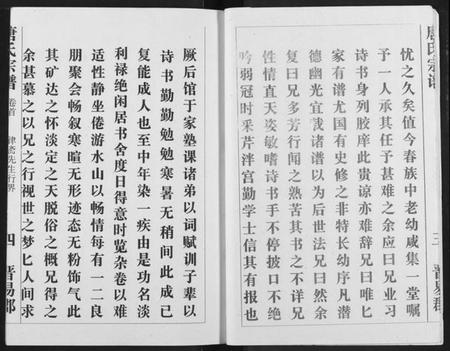 唐氏宗谱
三
晋易郡
忧之久矣值今春族中老幼咸集一堂嘱
予一人承其任予甚难之余应曰兄业习
诗书身列胶庠此贵谅亦难辞兄曰唯匕
家有谱尤国有史修之非特长幼序凡潜
德幽光宜茂诸谱以为后世法兄曰然余
复曰兄多芳行闻之熟苦其书之不详兄
性情直天姿敏嗜诗书手不停披口不绝
吟弱冠时采芹泮宫勤学士信其有报也
厥后馆于家塾课诸弟以词赋训子辈以
诗书勤勤勉勉寒暑无稍间此成己
复能成人也至中年染一疾由是功名淡
利禄绝闲居书舍度日得意时览杂卷以难
适性静坐倦游水山以畅情每有一二良
朋聚会畅叙寒暄无形迹态无粉饰气此
其矿达之怀淡定之天脱俗之概兄得之
余甚慕之以兄之行视世之梦匕人间求
唐氏宗谱
卷首
律套先生行界
四
晋易郡